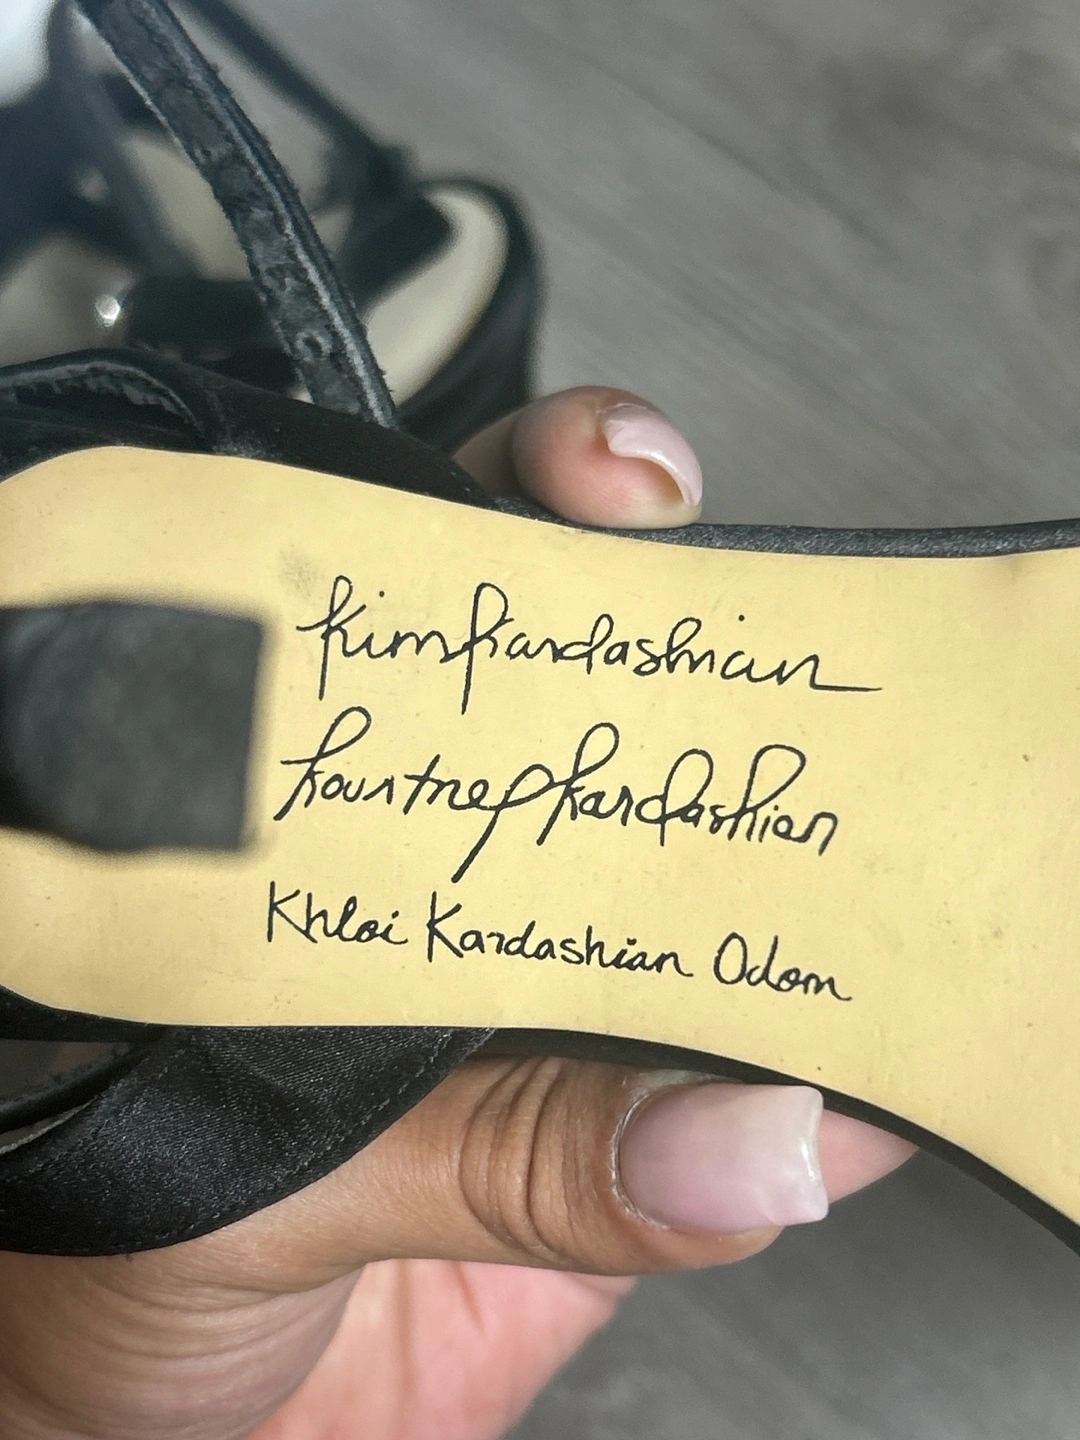 Kim Kardashian
Kourtney Kardashian
Khloé Kardashian Odom